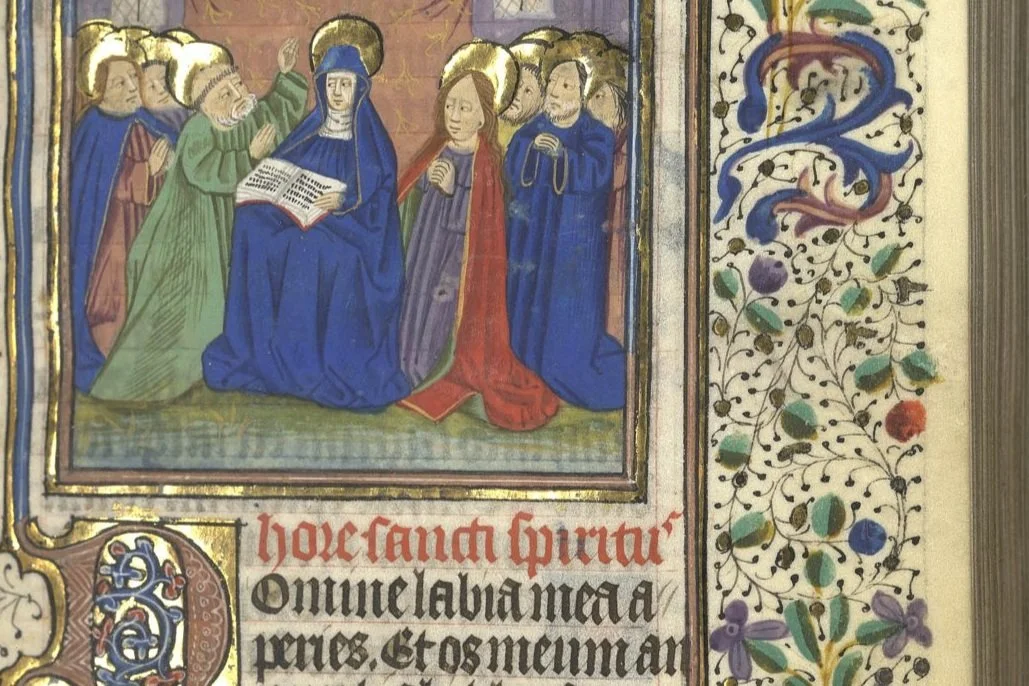 hore sancti spiritus
Domine labia mea a
peries. Et os meum an